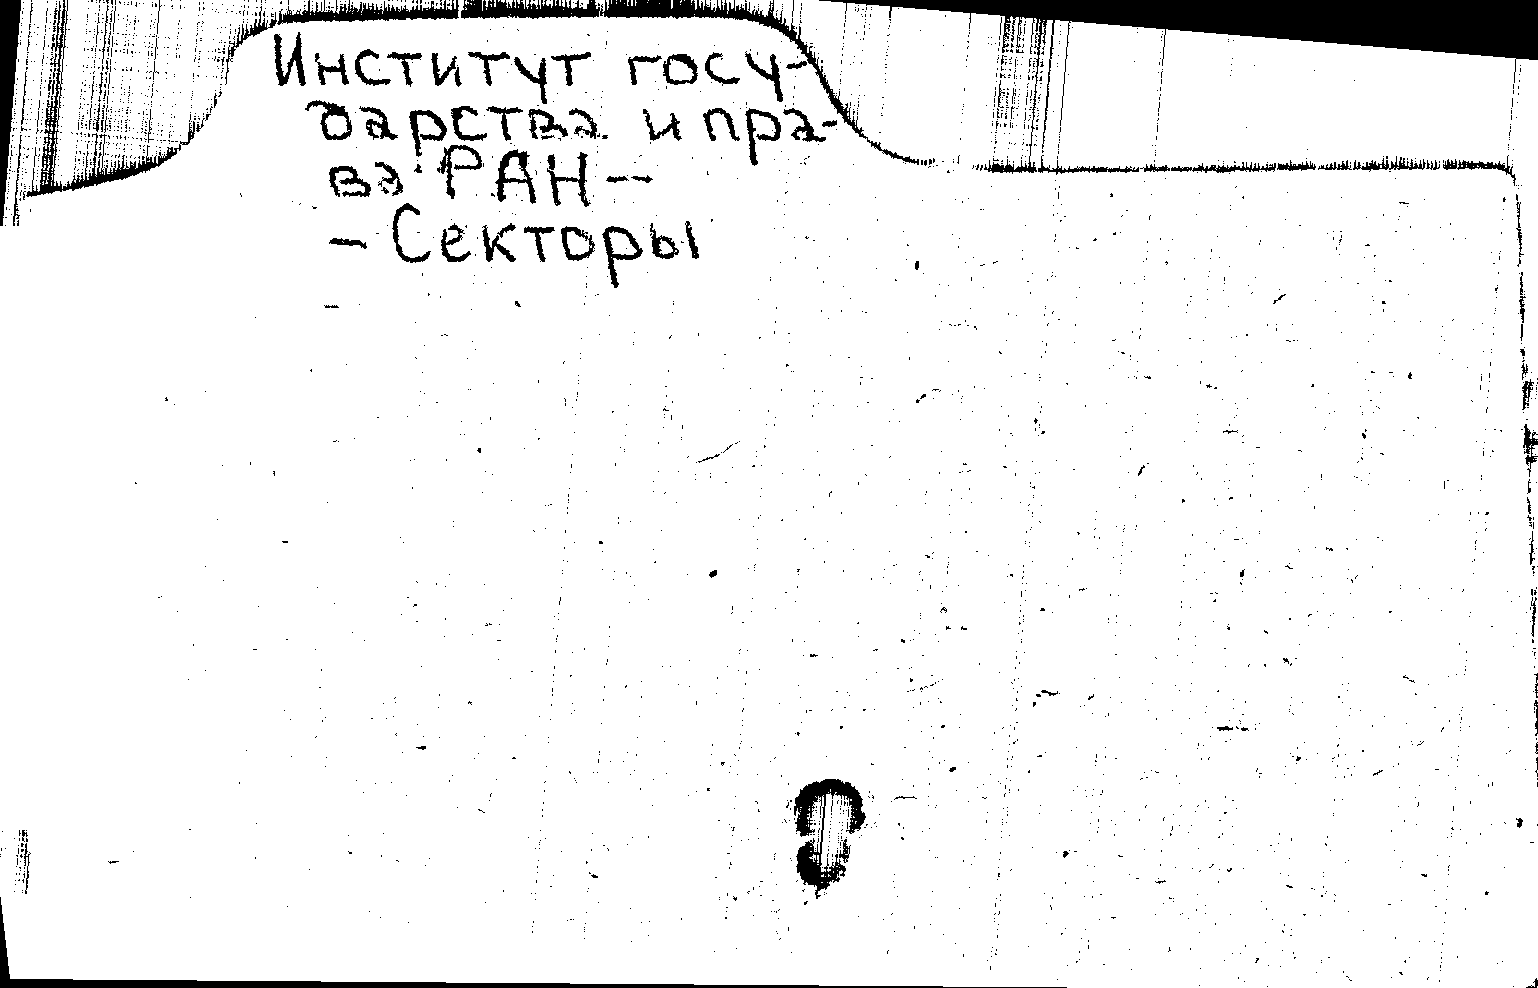 Институт госу-
дарства и пра-
ва РАН --
- Секторы